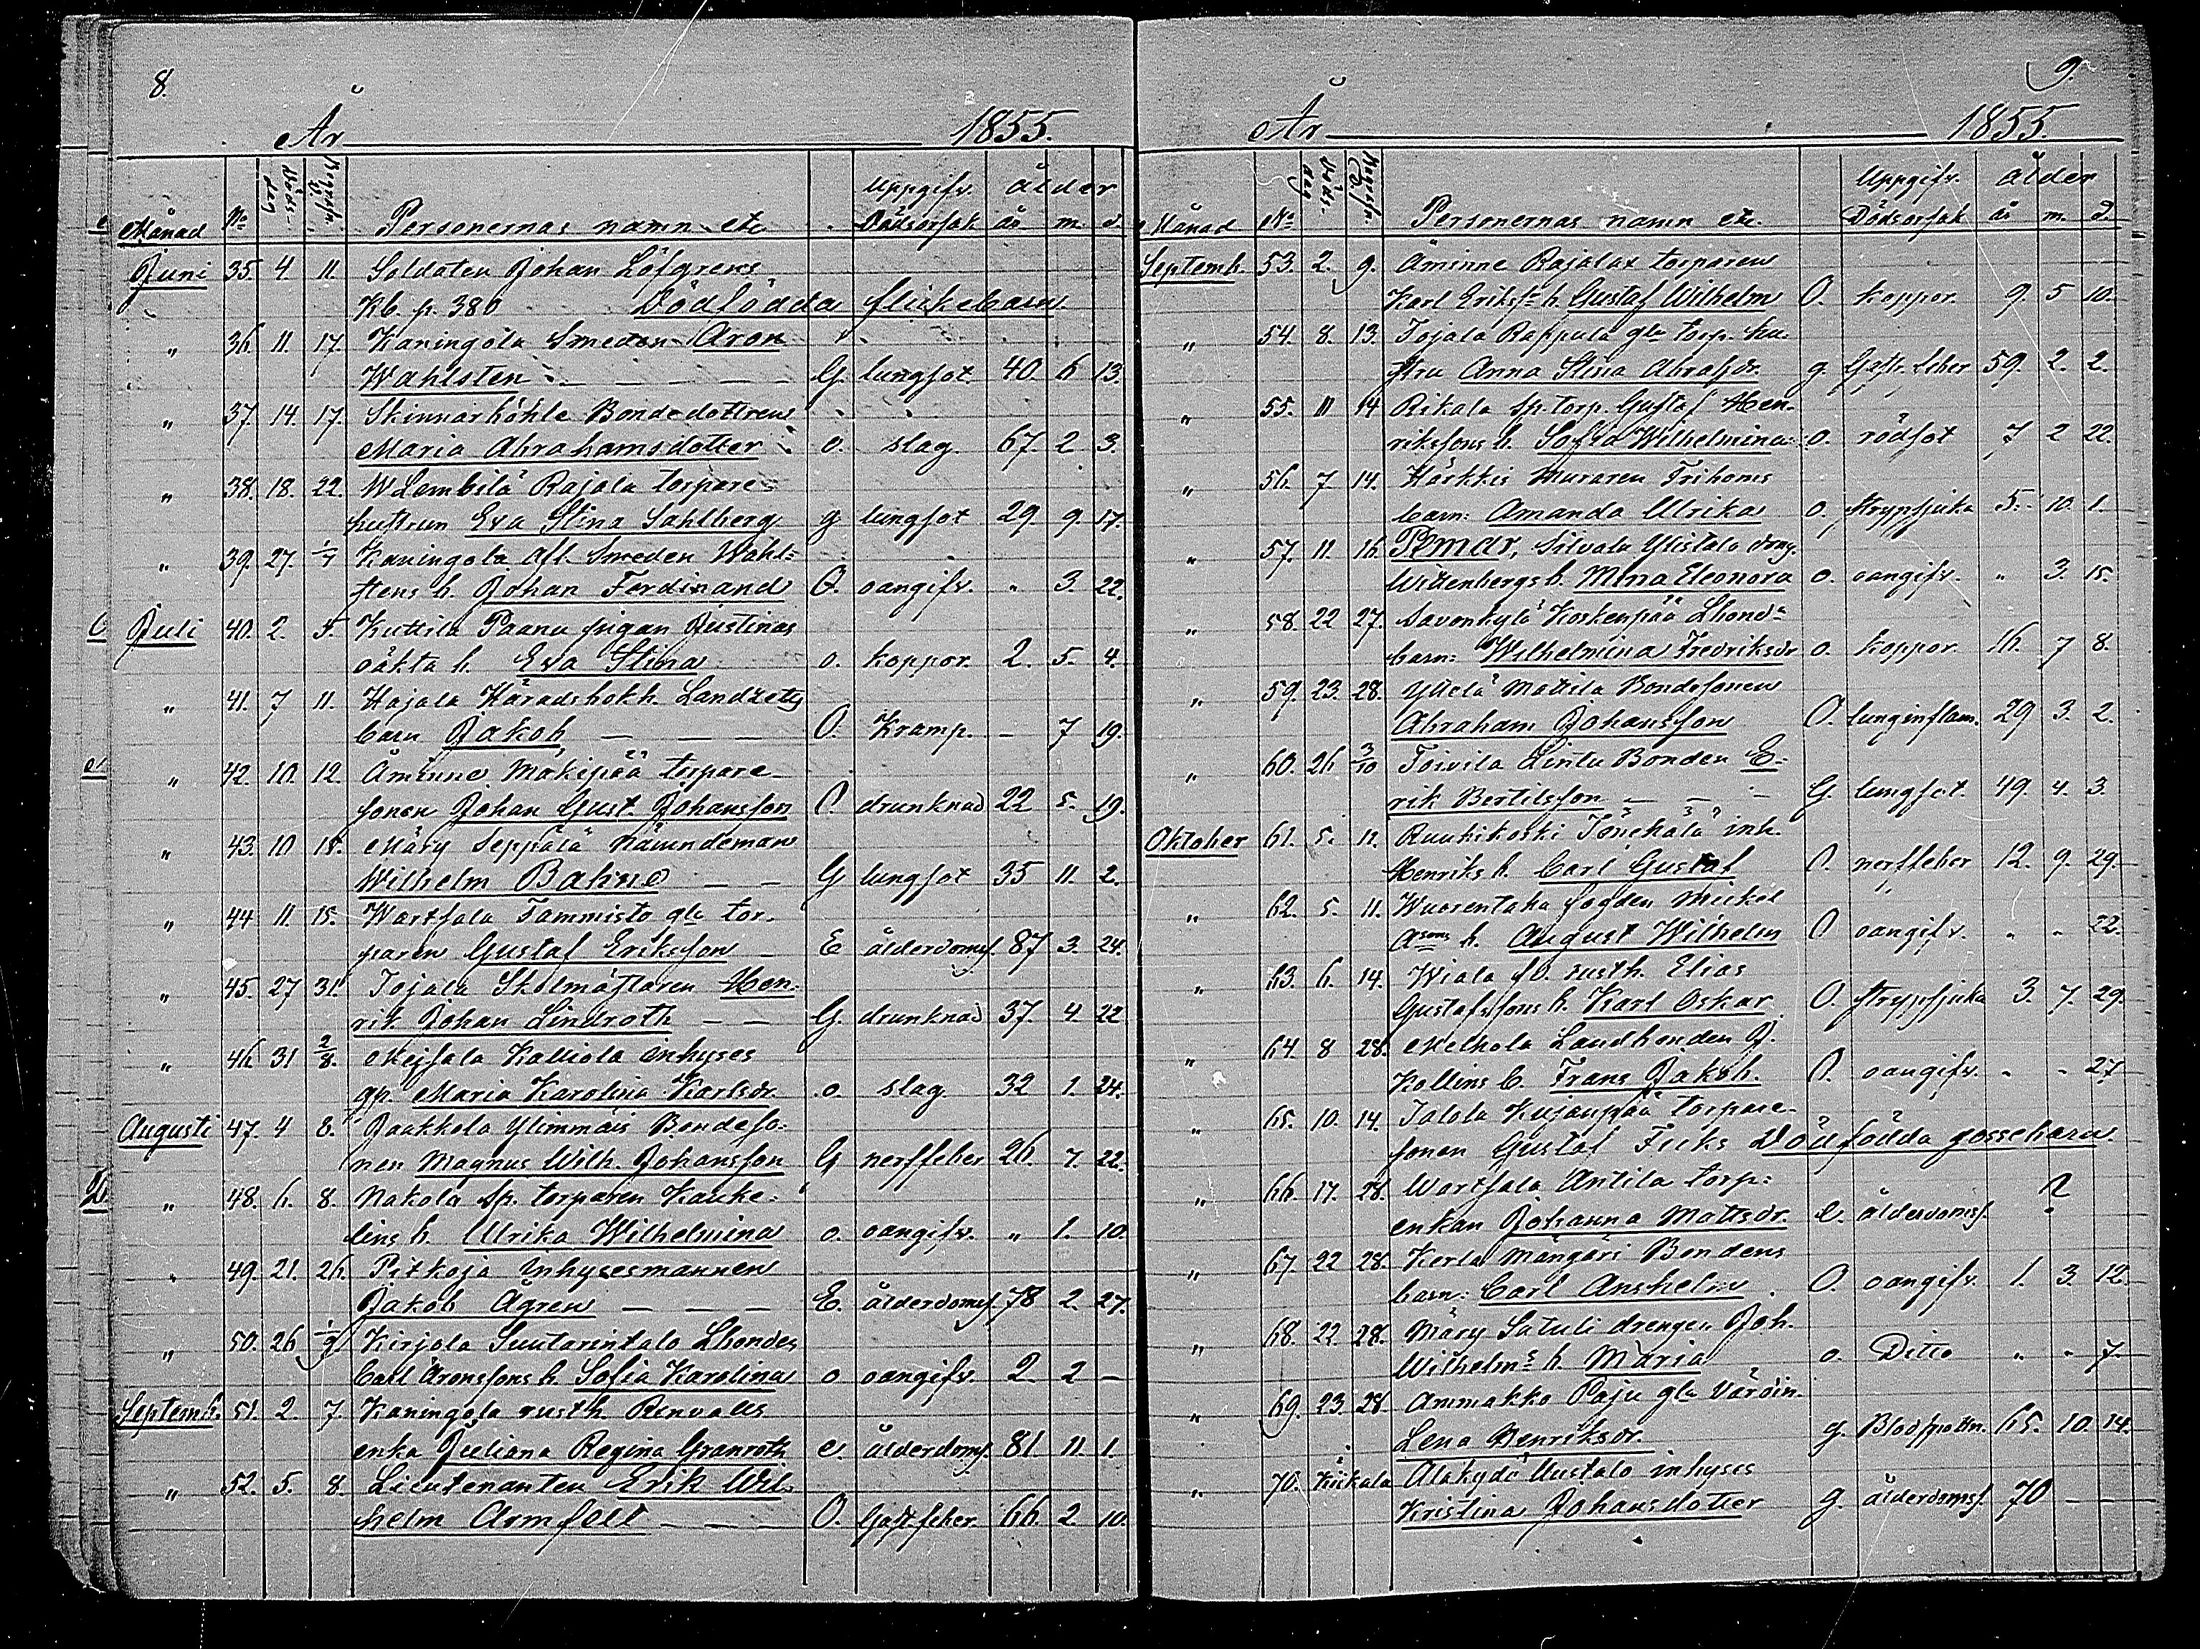 8.
År 1855.
Månad No Döds-dag Begrafn. d. Personernas namn etc Uppgifv. Dödsorsak ålder år m. d.
Juni 35. 4 11 Soldaten Johan Löfgrens
Kb. p. 380 Dödfödda flickebarn
" 36. 11. 17. Kaningola Smeden Aron
Wahlsten G. lungsot. 40. 6 13.
" 37. 14. 17. Skinnarhöhla Bondedottren
Maria Abrahamsdotter o. slag. 67. 2 3.
" 38. 18. 22. Lembilä Rajala torpare-
hustrun Eva Stina Sahlberg g lungsot 29 9. 17.
" 39. 27. 1/7 Kaningola afl. Smeden Wahl-
stens b. Johan Ferdinand O. oangifv. " 3. 22.
Juli 40. 2. 5. Kuttila Paanu pigan Justinas
oäkta b. Eva Stina o. koppor. 2. 5. 4.
" 41. 7 11. Hajala Häradshökh. Landzetts
barn Jakob O. Kramp. - 7 19.
" 42. 10. 12. Åminne Mäkipää torpare-
sonen Johan Gust. Johansson O. drunknad 22 5. 19.
" 43. 10 18. Märy Seppälä Nämndeman
Wilhelm Bahne G lungsot 35 11. 2.
" 44 11 15. Wartsala Tammisto gla tor-
paren Gustaf Eriksson E ålderdomsf. 87 3. 24.
" 45. 27 31. Tojala Skolmästaren Hen-
rik Johan Lindroth G. drunknad 37. 4. 22
" 46. 31 2/8. Meisala Kalliola inhyses
gp. Maria Karolina Karlsdr. o. slag 32 1. 24.
Augusti 47. 4 8. Jaakkola Ylimmäis Bondeso-
nen Magnus Wilh. Johansson G nerffeber 26. 7. 22.
" 48. 6. 8. Nakola sp. torparen Kauke-
lins b. Ulrika Wilhelmina o. oangifv. " 1. 10.
" 49. 21. 26. Pitkoja Inhysesmannen
Jakob Ågren E. ålderdomsf. 78 2. 27.
" 50. 26 1/9 Kirjola Suutarintalo Lbondes
Carl Aronssons b. Sofia Karolina o oangifv. 2 2 -
Septemb. 51. 2. 7. Kaningola rusth. Renvalls
enka Juliana Regina Granroth e. ålderdomsf. 81. 11. 1.
" 52. 5. 8. Lieutenanten Erik Wil-
helm Armfelt O. Gastfeber. 66. 2. 10.
9.
År 1855.
Månad No Döds-dag Begrafn. d. Personernas namn etc. Uppgifv. Dödsorsak ålder år m. d.
Septemb. 53. 2. 9. Åminne Rajalax torparen
Karl Eriksns b. Gustaf Wilhelm O. koppor. 9. 5 10.
" 54. 8. 13. Tojala Rappula gla torp. hu-
stru Anna Stina Abrahsdr. g Gastr. feber 59. 2. 2.
" 55. 11 14 Rikala Sp. torp. Gustaf Hen-
rikssons b. Sofia Wilhelmina o. rödsot 7 2 22.
" 56. 7 14. Härkkis Muraren Frihoms
barn: Amanda Ulrika o. strypsjuka 5. 10. 1.
" 57. 11. 16. Pemar, Silvola Ylistalo dräng.
Widenbergs b. Mina Eleonora o. oangifv. " 3. 15.
" 58. 22 27. Savonkylä Koskenpää Lbond-
barn: Wilhelmina Fredriksdr o. koppor. 16. 7 8.
" 59. 23. 28. Yltelä Mattila Bondesonen
Abraham Johansson O. lunginflam. 29 3. 2.
" 60. 26 3/10 Toivila Lintu Bonden E-
rik Bertilsson G. lungsot. 49. 4. 3.
Oktober 61. 5. 11. Ruuhikoski inh.
Henriks b. Carl Gustaf O. nerffeber 12. 9. 29.
" 62. 5. 11. Wuorentaka fogden Mickel
Asons b. August Wilhelm O oangifv. " " 22.
" 63. 6. 14. Wiala fd. rusth. Elias
Gustafssons b. Karl Oskar O. strypsjuka 3. 7. 29.
" 64. 8 28. Melkola Landbonden J.
Kollins b. Frans Jakob. O. oangifv. " - 27
" 65. 10. 14. Talola Kujanpää torpare-
sonen Gustaf Ficks Dödfödda gossebarn.
" 66. 17. 28. Wartsala Antila torp:
enkan Johanna Mattsdr. e. ålderdomsf. ?
" 67. 22 28. Kerla Mångari Bondens
barn: Carl Anshelm O. oangifv. 1. 3. 12.
" 68. 22. 28. Märy Satuli drengen Joh.
Wilhelms b. Maria o. Ditto " - 7.
" 69. 23. 28 Ammakko Paju gla värdin.
Lena Henriksdr. g. Blodspottn. 65. 10. 14.
" 70. Kiikala Alakydö Uustalo inhyses
Kristina Johansdotter g. ålderdomsf. 70 - -